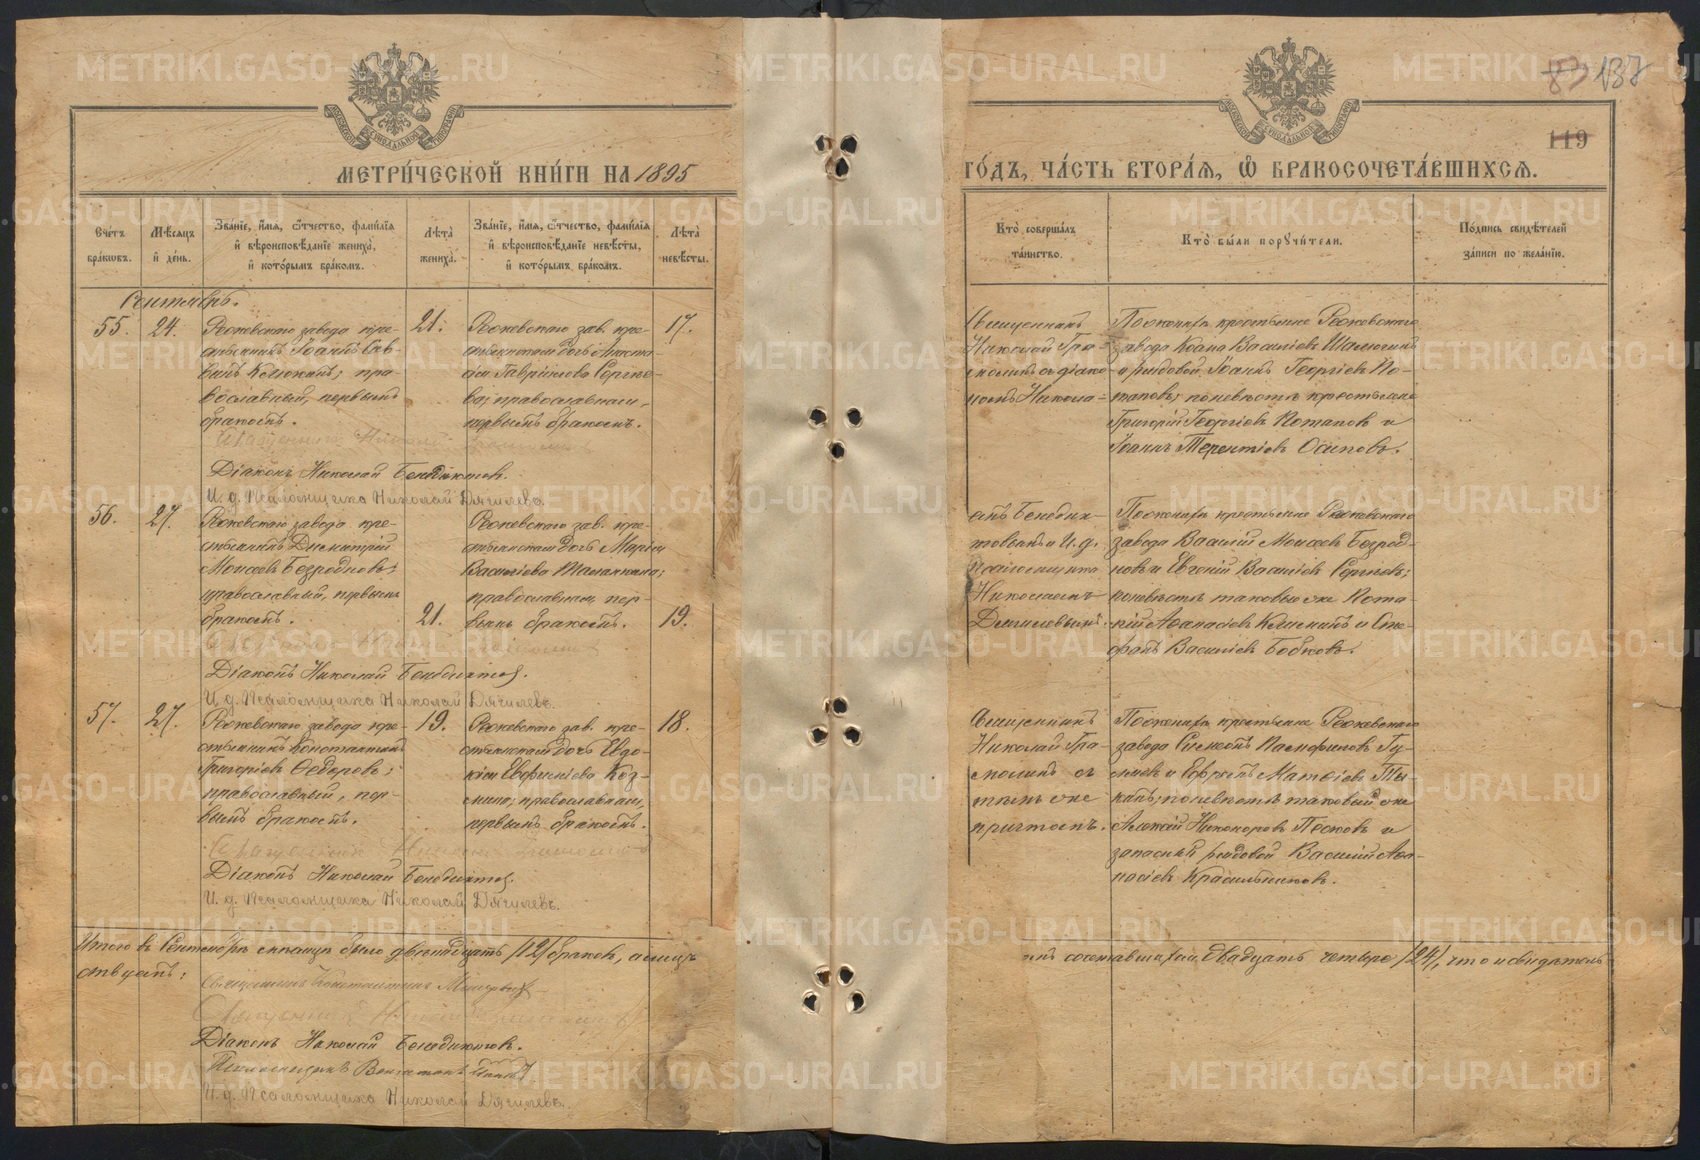 87 137
119
МЕТРИ́ЧЕСКОЙ КНИ́ГИ НА 1895
ГО́ДЪ, ЧА́СТЬ ВТОРА́Я, Ѡ҆ БРАКОСОЧЕТА́ВШИХСЯ.
Сче́тъ бра́ковъ.
Мѣ́сяцъ и҆ де́нь.
Зва́нїе, и҆́мя, ѻ҆́тчество, фами́лїя и҆ вѣроисповѣ́данїе жениха̀, и҆ кото́рымъ бра́комъ.
Лѣ́та̀ жениха̀.
Зва́нїе, и҆́мя, ѻ҆́тчество, фами́лїя и҆ вѣроисповѣ́данїе невѣ́сты, и҆ кото́рымъ бра́комъ.
Лѣ́та̀ невѣ́сты.
Кто̀ соверша́лъ та́инство.
Кто̀ бы́ли порꙋчи́тели.
По́дпись свидѣ́телей за́писи по жела́нїю.
Сентябрь.
55.
24.
Режевскаго завода кре-
стьянинъ Іоаннъ Сав-
винъ Клюкинъ; пра-
вославный, первымъ
бракомъ.
21.
Режевскаго зав. кре-
стьянская дочь Анаста-
сія Гавріилова Сергѣе-
ва; православная,
первымъ бракомъ.
17.
Священникъ
Николай Гра-
молинъ съ діако-
номъ Никола-
Поженихѣ крестьяне Режевскаго
завода Козма Василіевъ
и рядовой Іоаннъ Георгіевъ По-
таповъ; поневѣстѣ крестьяне
Григорій Георгіевъ Потаповъ и
Іоаннъ Терентіевъ Осиповъ.
Діаконъ Николай Бенедиктовъ.
И. д. Псаломщика Николай Дягилевъ.
56.
27.
Режевскаго завода кре-
стьянинъ Димитрій
Моисеевъ Безродновъ;
православный, первымъ
бракомъ.
21.
Режевскаго зав. кре-
стьянская дочь Марія
Василіева
православная, пер-
вымъ бракомъ.
19.
емъ Бенедик-
товымъ и И. д.
Псаломщика
Николаемъ
Дягилевымъ.
Поженихѣ крестьяне Режевскаго
завода Василій Моисеевъ Безрод-
новъ и Евгеній Василіевъ Сергѣевъ;
поневѣстѣ таковые же
Афанасіевъ и Сте-
фанъ Василіевъ Бобковъ.
Діаконъ Николай Бенедиктовъ.
И. д. Псаломщика Николай Дягилевъ.
57.
27.
Режевскаго завода кре-
стьянинъ Константинъ
Григоріевъ Ѳедоровъ;
православный, пер-
вымъ бракомъ.
19.
Режевскаго зав. кре-
стьянская дочь Евдо-
кія Евфиміева Коз-
мина; православная,
первымъ бракомъ.
18.
Священникъ
Николай Гра-
молинъ съ
тѣмъ же
причтомъ.
Поженихѣ крестьяне Режевскаго
завода Симеонъ Панфиловъ Гу-
и Ефремъ Матѳіевъ
поневѣстѣ таковый же
Алексій Никаноровъ Песковъ и
запасный рядовой Василій Афа-
насіевъ Красильниковъ.
Діаконъ Николай Бенедиктовъ.
И. д. Псаломщика Николай Дягилевъ.
Итого въ Сентябрѣ мѣсяцѣ было двѣнадцать /12/ браковъ, а лицъ
въ нихъ сочетавшихся двадцать четыре /24/, что и свидѣтель-
ствуемъ:
Священникъ Константинъ
Діаконъ Николай Бенедиктовъ.
Псаломщикъ
И. д. Псаломщика Николай Дягилевъ.
METRIKI.GASO-URAL.RU